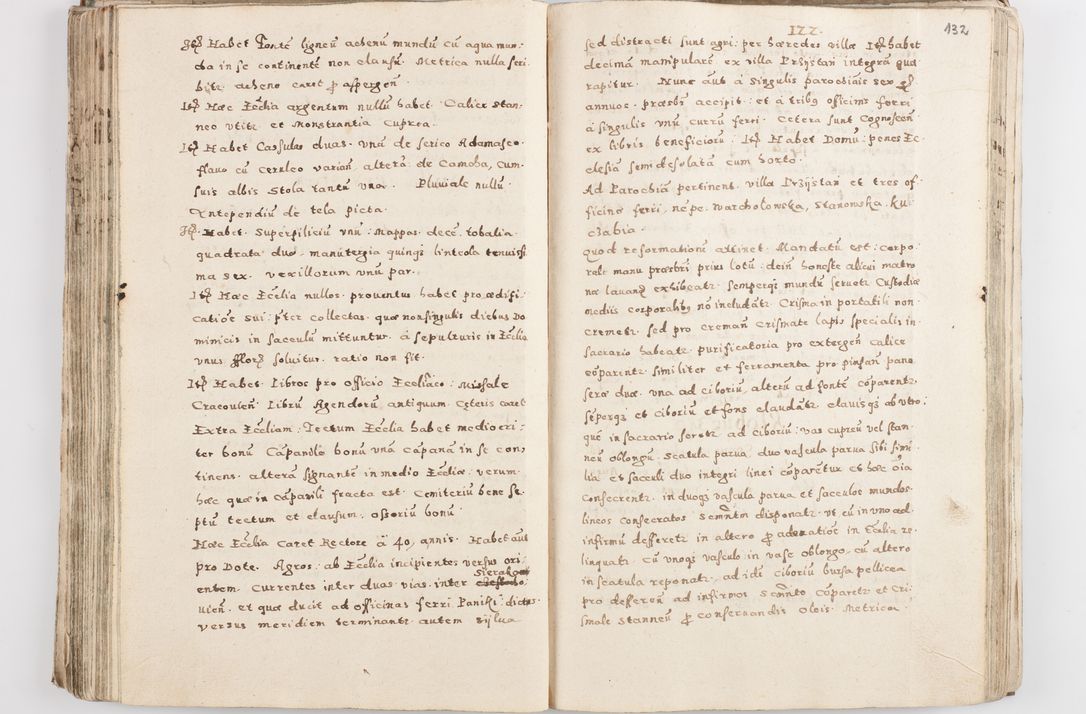 Itē Habet Fontē ligneū achenū mundū cū aqua mun
da in se continentē non clausū. Metrica nulla scri
bitr acheno caret ꝓ aspergen̄
Itē Haec Ecclīa argentum nullū habet Calice stan
neo utitr et Monstrantia Cuprea.
Itē Habet Casulas duas. unā de serico Adamasco.
flauo cū ceruleo varian̄ alterā de Camoha, Cum
suis albis Stola tantū una. Pluuiale nullū.
Antependiū de tela picta.
Itē. Habet. Superpiliciū unū: Mappas. decē. tobalia.
quadrata duo. manutergia quinqꝫ linteola tenuissi
ma sex. vexillorum unū par.
Itē Haec Ecclīa nullos. prouentus habet pro aedifi
catiōe sui: pter collectas. quae non singulis diebus Do
minicis in saculū mittuntur. à sepulturis in Ecclīa
unus florꝫ soluitur. ratio non fit.
Itē Habet. Libros pro officio Eccliāco: Missale
Cracouien̄ Librū Agendorū antiquum. Caeteris caret
Extra Eccliam: Tectum Ecclia habet mediocri
ter bonū Capanilo bonū unā Capanā in se con
tinens. alterā signantē in medio Eccliae: verum.
haec quae in cāpanili fracta est. Cemiteriū bene se
ptū tectum et clausum. ossoriū bonū
Haec Ecclia Caret Rectore à 40, annis. Habet aūt
pro Dote. Agros: ab Ecclia incipientes versus ori
entem. Currentes inter duas. vias. inter Sierako
uien̄. et quae ducit ad officinas ferri Panki: dictas.
versus meridiem terminantr autem sylua
III.
132
sed distracti sunt agri: per haeredes villae Itē habet
decimā manipularē ex villa Przÿstan integrā quae
rapitur. Nunc aūt à singulis parochiāis sex gr
annuos. praesbr accipit: et à tribꝰ officinis ferri
à singulis unū currū ferri. Cetera sunt Cognoscen̄
ex libris beneficiorū. Itē Habet Domū: penes Ec
clesiā semidesolatā cum horto.
Ad Parochiā pertinent. villa Przÿstan et tres of
ficinae ferri, nēpe. Warcholowska, Stanowska. ku
czabia.
Quod reformationē attinet. Mandatū est: Corpo
rale manu praesbri prius lotū: dein̄ honestae alicui matro
nae lauanꝫ exhibeatr. Semperqꝫ mundū seruetr Custodiae
mediis corporalibꝰ nō includātr. Crisma in portatili non
cremetr. sed pro creman̄ Crismate lapis specialis in
sacrario habeatr. Purificatoria pro extergen̄ calice
cōparentr similiter et ferramenta pro pinsan̄ pane
serae duae. una ad ciboriū, alterā ad fontē cōparentr
sēperqꝫ et ciboriū et fons claudātr clauisqꝫ ab utro:
que in sacrario seretr ad ciboriū: vas cupreū vel stan
neū oblongū. scatula parua duo vascula parua sibi simi
lia et saculi duo integri linei cōparētur et haec oīa
Consecrentr. in duoqꝫ vascula parua et saculos mundos
lineos consecratos Scmntm disponatr. ut cū in uno ad
infirmū defferetr in altero ꝓ adoratiōe in Ecclīa re
linquatr. cū unoqꝫ vasculo in vase oblongo. cū altero
in scatula reponatr. ad idē ciboriū bursa pellicea
pro defferen̄ ad infirmos Scmnto cōparetr et Cri
smale stanneū ꝓ conseruandis Oleis. Metrica